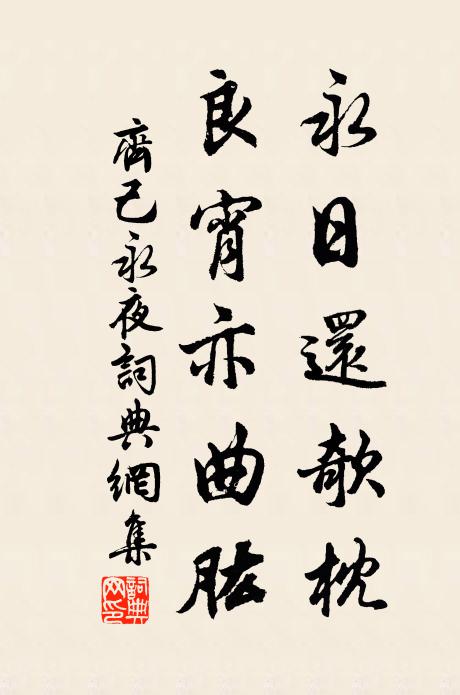 永日還欹枕
良宵亦曲肱
齊己永夜詞典網集
詞典網印